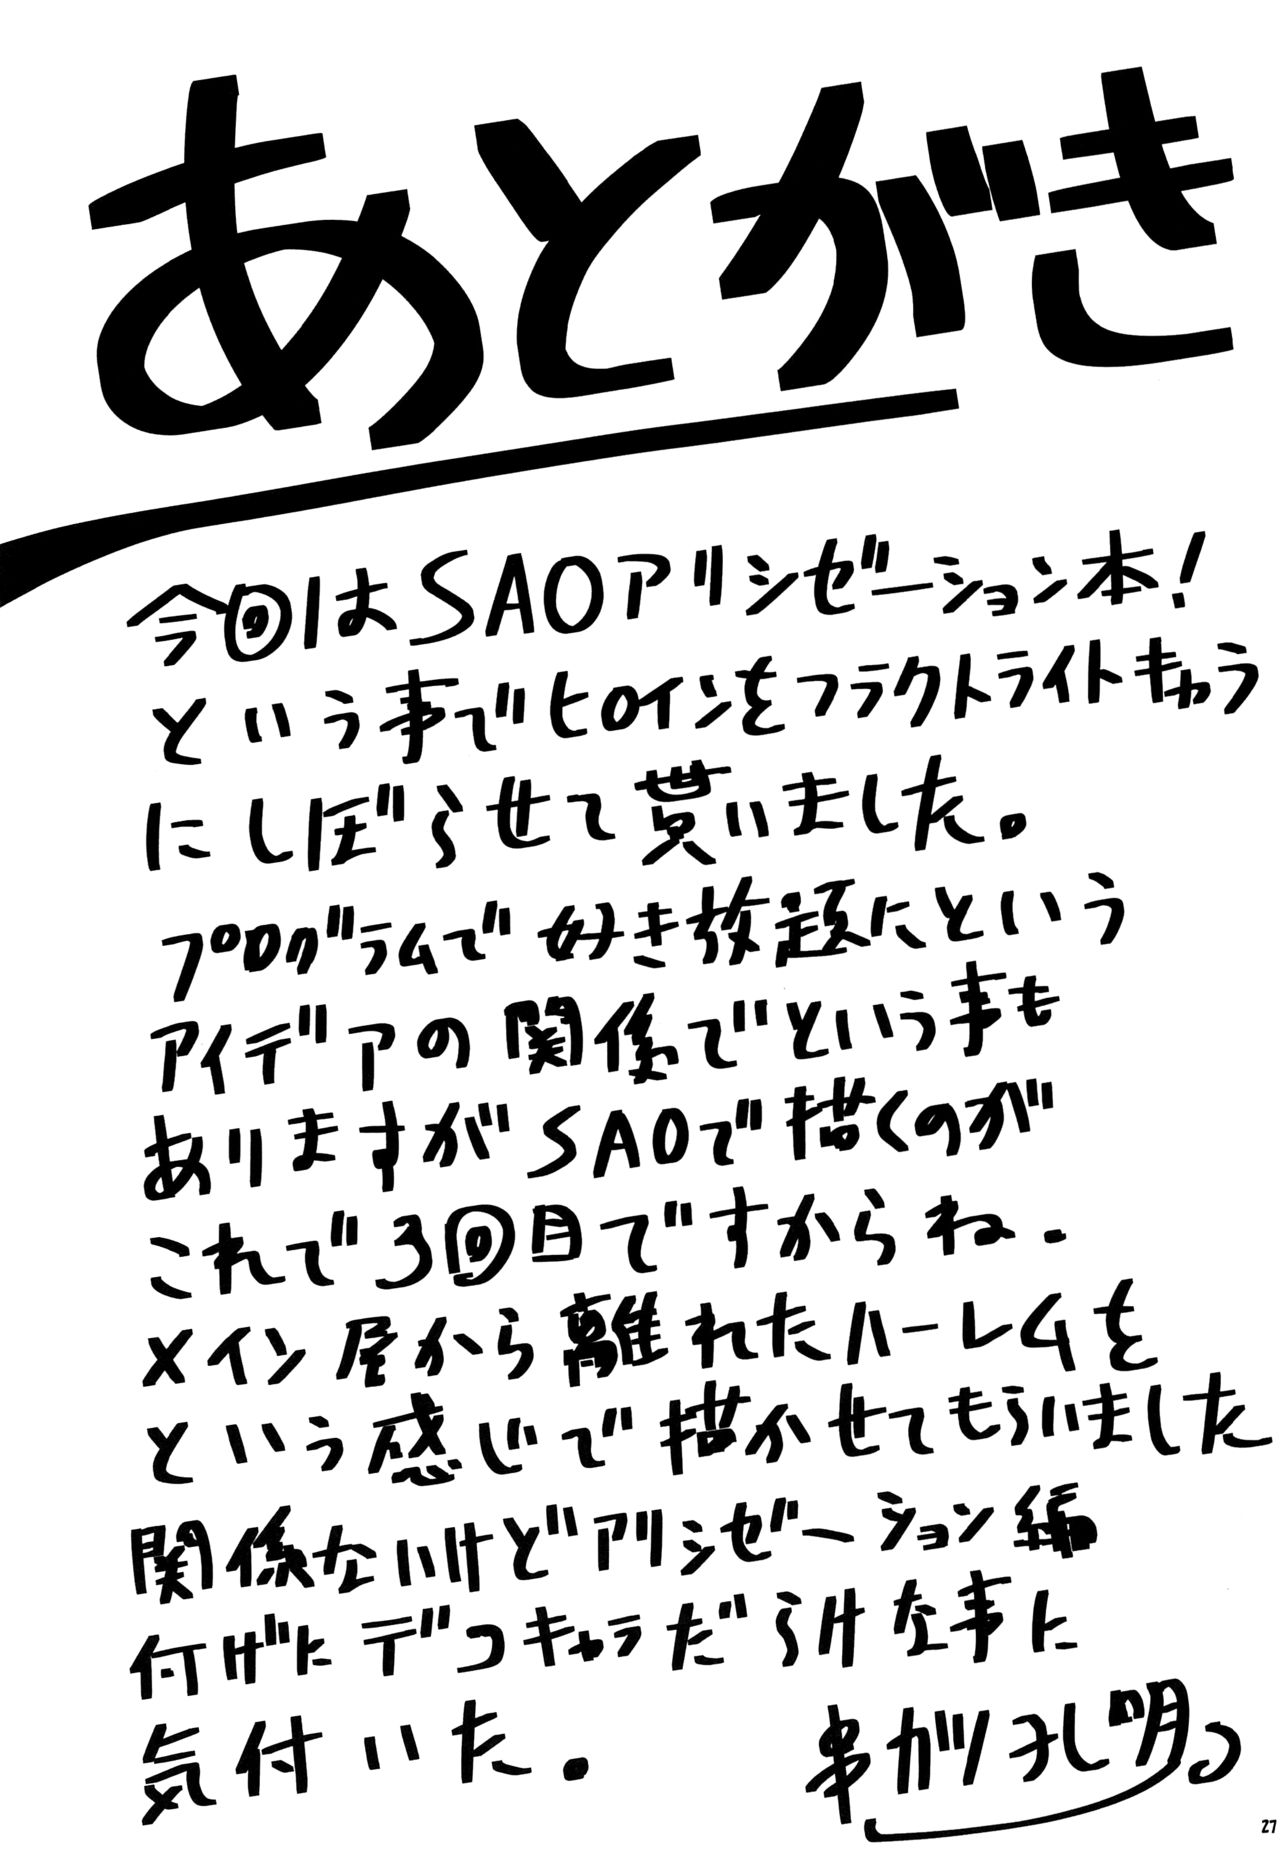 あとがき
今回はSAOアリシゼーション本!
という事でヒロインをフラクトライトキャラ
にしぼらせて貰いました。
プログラムで好き放題にという
アイデアの関係でという事も
ありますがSAOで描くのが
これで3回目ですからね.
メイン屋から離れたハーレムを
という感じで描かせてもらいました
関係ないけどアリシゼーション編
付げにデコキャラだらけな事に
気付いた。
串ガリ孔明
27